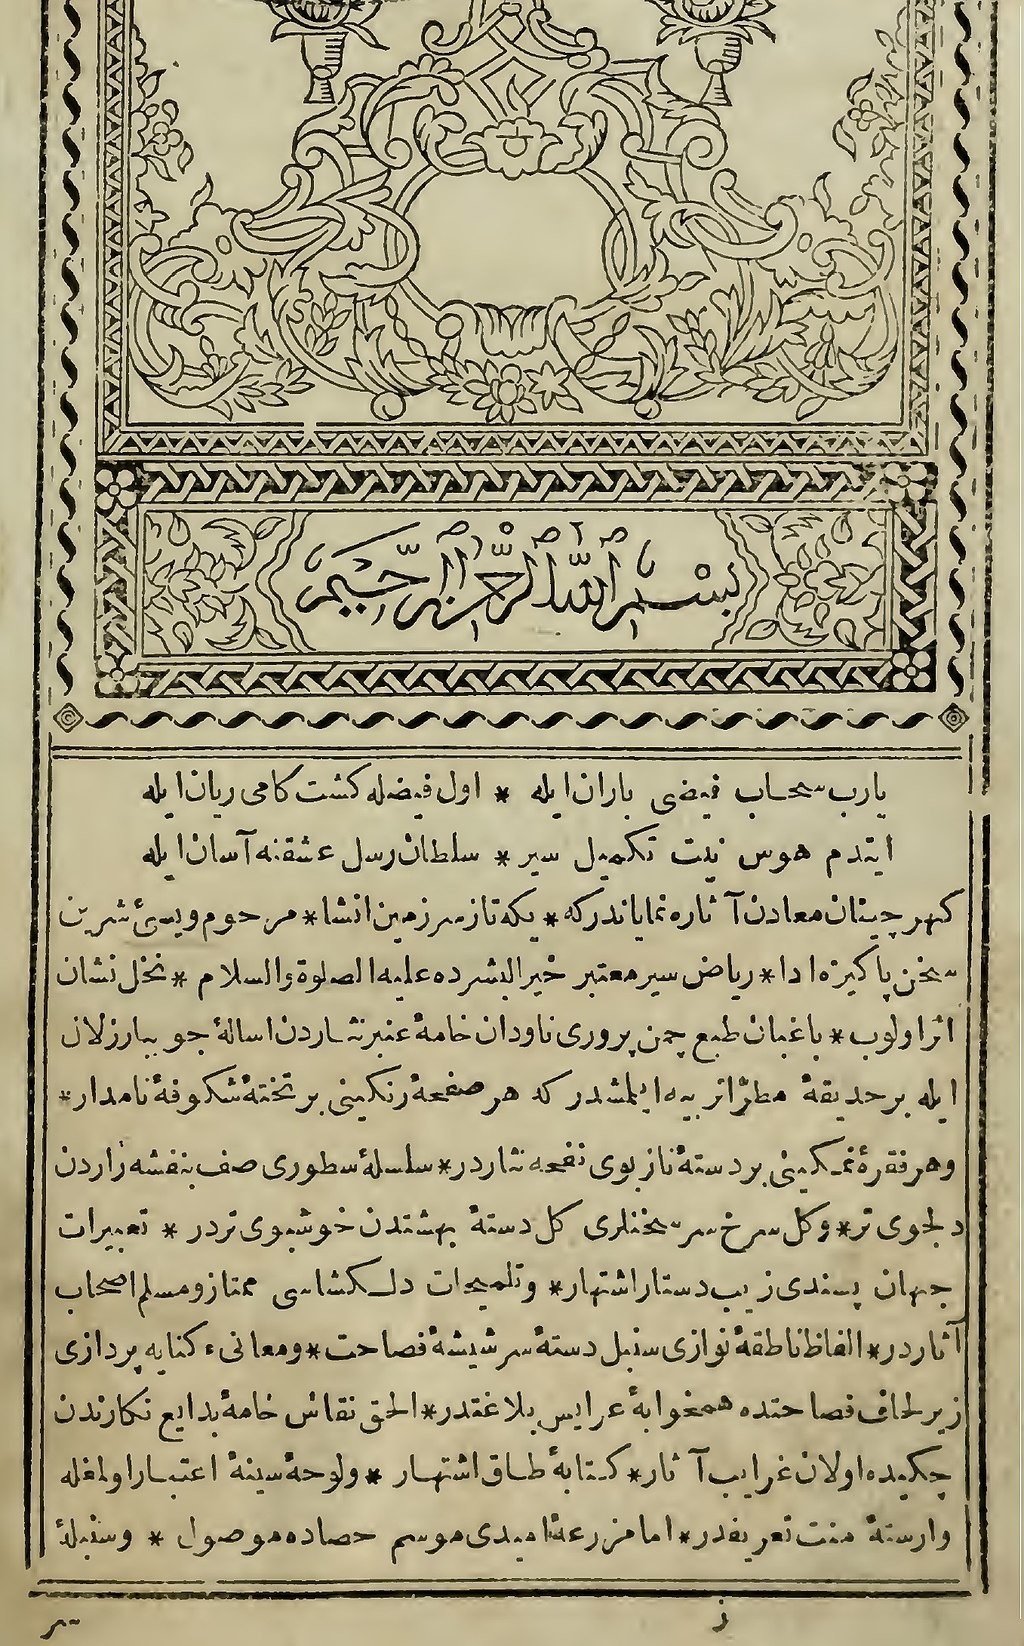 بسم الله الرحمن الرحيم
يارب سحاب فيضى باران ايله * اول فيضله كشت كامى ريان ايله
ايتدم هوس نيت تكميل سير * سلطان رسل عشقنه آسان ايله
كهرچينان معادن آثاره نماياندركه * يكه تاز سرزمين انشا * مرحوم ويسئ شيرين
سخن پاكيزه ادا * رياض سير معتبر خير البشرده عليه الصلوة والسلام * نخل نشان
اثر اولوب * باغبان طبع چمن پرورى ناودان خامۀ عنبر نثاردن اسالۀ جويبار زلال
ايله بر حديقۀ مطرّا تربيه ايلمشدر كه هر صفحۀ رنكينى بر تختۀ شكوفۀ نامدار *
وهر فقرۀ نمكينى بر دستۀ نازبوى نفحه نثاردر * سلسلۀ سطورى صف بنفشه زاردن
دلجوى تر * وكل سرخ سر سخنلرى كل دستۀ بهشتدن خوشبوى تردر * تعبيرات
جهان پسندى زيب دستار اشتهار * وتلميحات دلكشاسى ممتاز ومسلم اصحاب
آثاردر * الفاظ ناطقۀ نوازى سنبل دستۀ سر شيشۀ فصاحت * ومعانىء كنايه پردازى
زير لحاف فصاحتده همخوابۀ عرايس بلاغتدر * الحق نقاش خامۀ بدايع نكارندن
چكيده اولان غرايب آثار * كتابۀ طاق اشتهار * ولوحۀ سينۀ اعتبار اولمغله
وارستۀ منت تعريفدر * اما مزرعۀ اميدى موسم حصاده موصول * وسنبلۀ